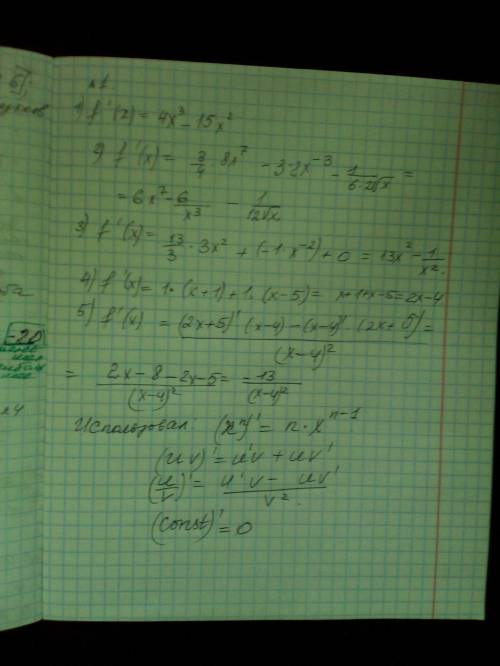 №1
1) f'(x) = 4x³ - 15x²
2) f'(x) = 3/4 · 8x⁷ - 3·2x⁻³ - 1/(6·2√x) =
= 6x⁷ - 6/x³ - 1/(12√x)
3) f'(x) = 13/3 · 3x² + (-1·x⁻²) + 0 = 13x² - 1/x².
4) f'(x) = 1·(x+1) + 1·(x-5) = x+1+x-5 = 2x-4
5) f'(x) = ((2x+5)'(x-4) - (x-4)'·(2x+5))/(x-4)² =
= (2x-8-2x-5)/(x-4)² = -13/(x-4)²
Использовал: (xⁿ)' = n·xⁿ⁻¹
(uv)' = u'v + uv'
(u/v)' = (u'v - uv')/v².
(const)' = 0
-20